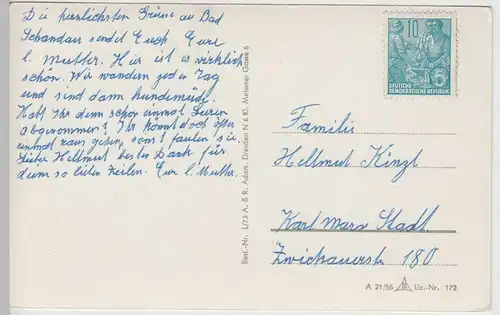 Die herzlichsten Grüße aus Bad
Schandau sendet Euch Eure
l. Mutter. Hier ist es wirklich
schön. Wir wandern jeden Tag
und sind dann hundemüde.
Habt Ihr denn schon einmal
abgenommen? Ihr könnt doch öfter
einmal raus gehen, sonst faulen sie.
Lieber Hellmut besten Dank für
deine so lieben Zeilen. Eure l. Mutter.
10
DEUTSCHE
DEMOKRATISCHE REPUBLIK
Familie
Hellmut Kinzl
Karl Marx Stadt.
Zwickauerstr 180
Best.-Nr. L/73 A. & R. Adam, Dresden N 6 Kl. Meißener Gasse 6
A 21/56 Liz.-Nr. 172